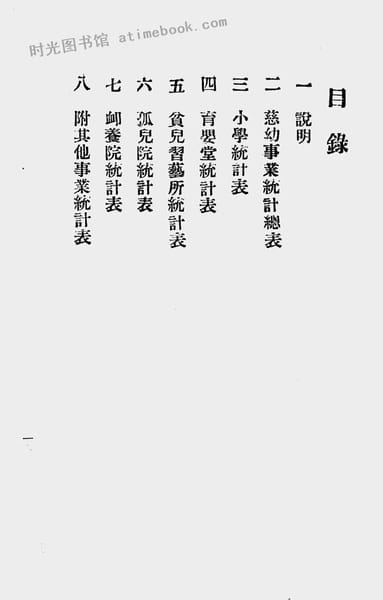 时光图书馆 atimebook.com
目錄
一 說明
二 慈幼事業統計總表
三 小學統計表
四 育嬰堂統計表
五 貧兒習藝所統計表
六 孤兒院統計表
七 卹養院統計表
八 附其他事業統計表
一